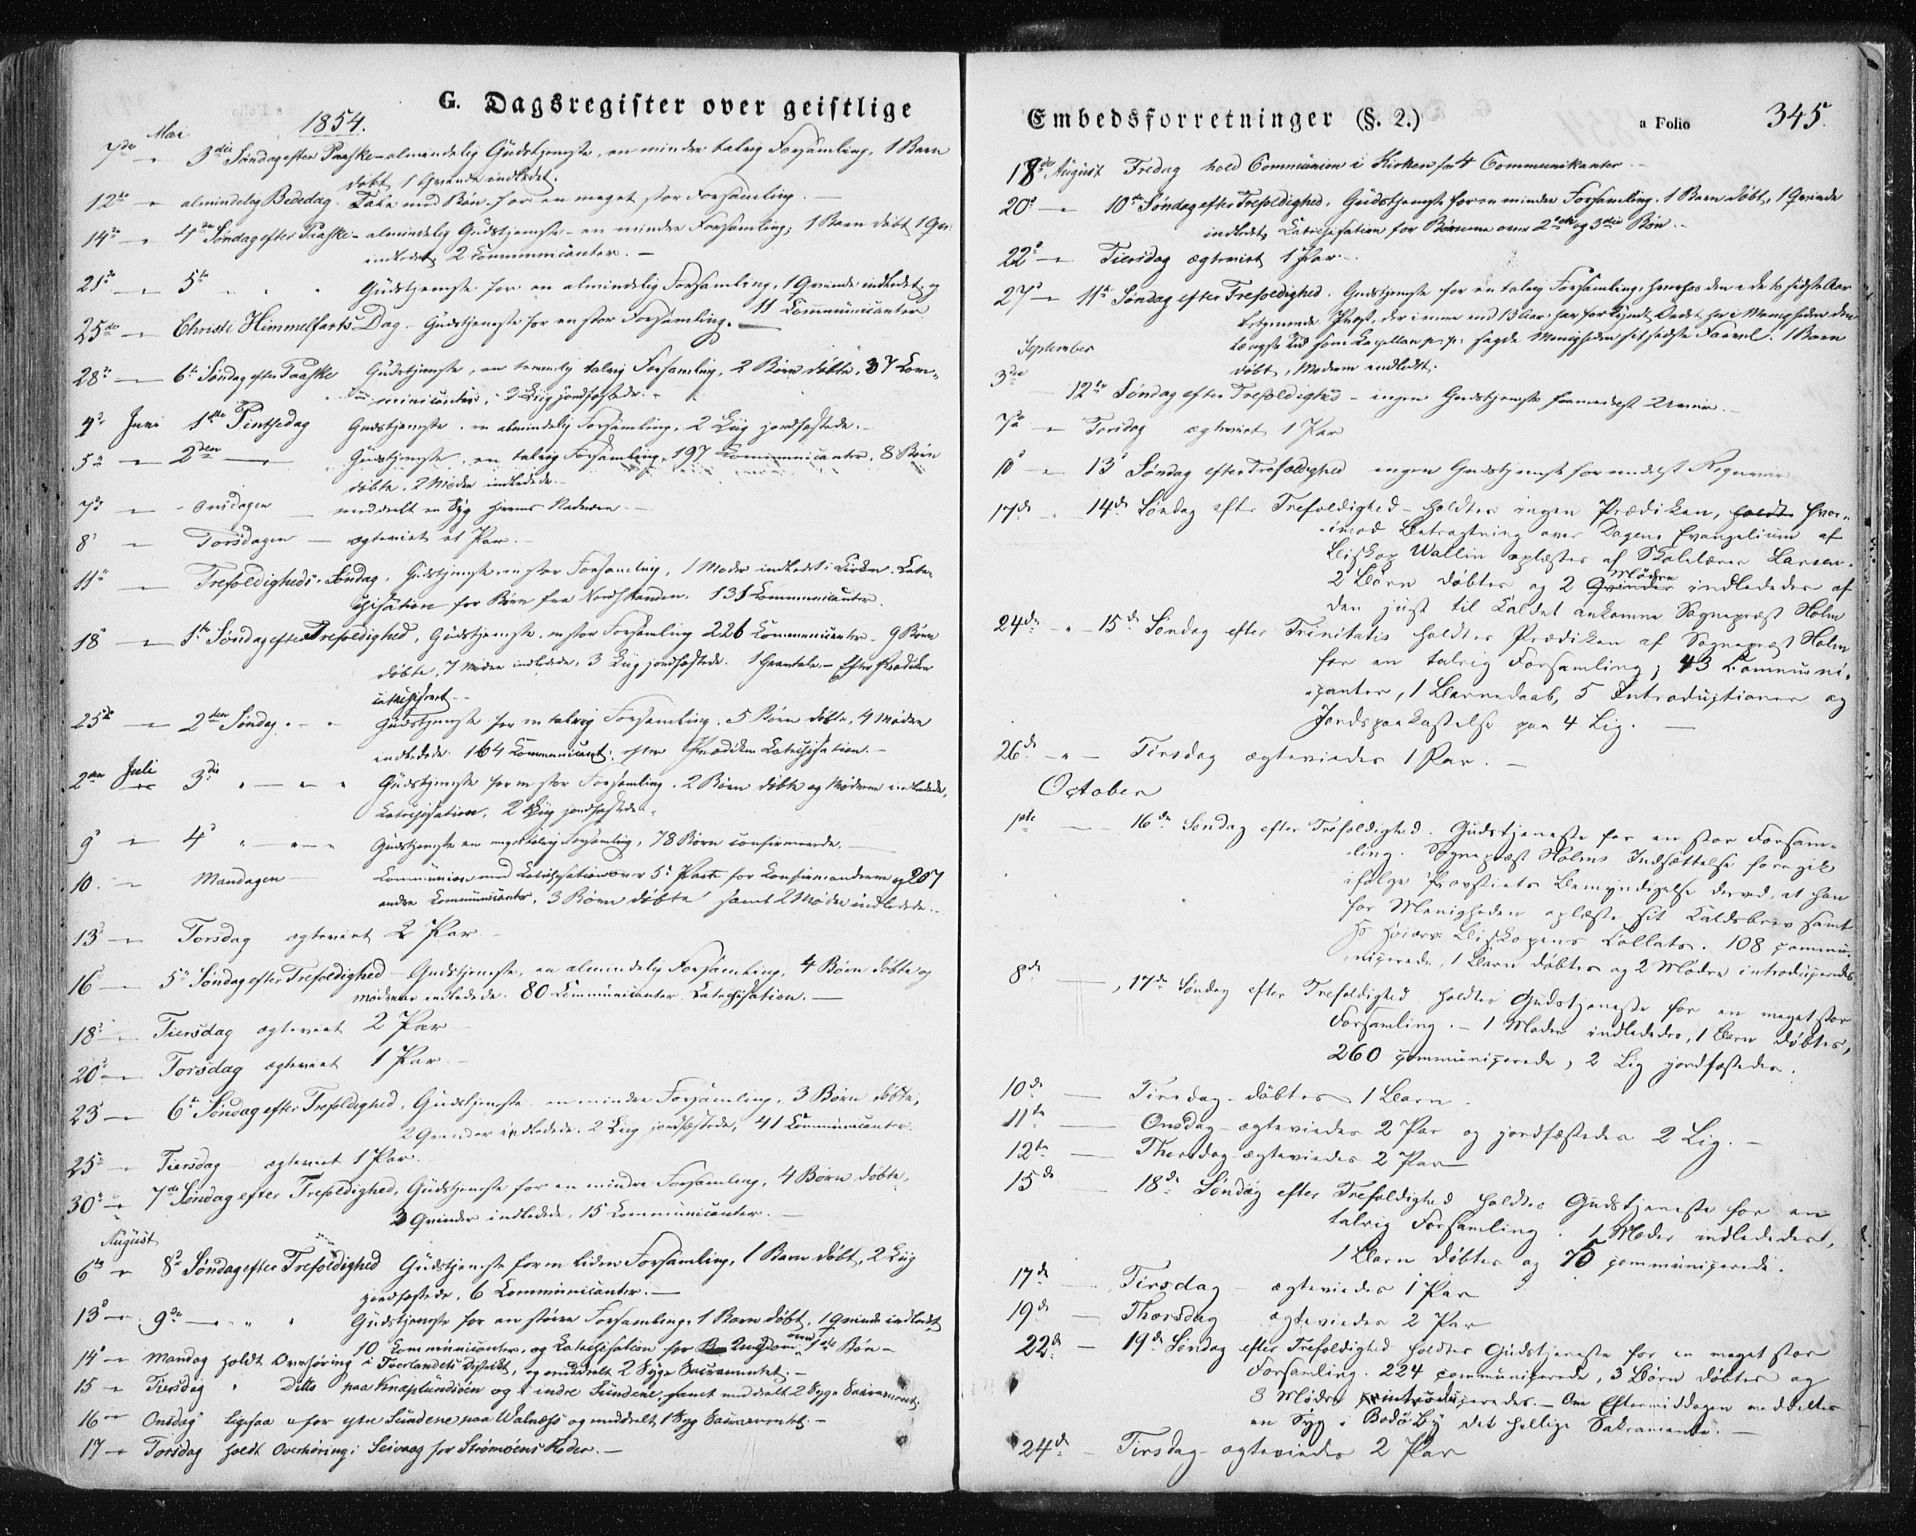 G. Dagsregister over geistlige
1854.
Mai
7de — 3die Søndag efter Paaske - almindelig Gudstjeneste, en mindre talrig Forsamling, 1 Barn
døbt, 1 Qvinde indledet.
12te — almindelig Bededag. Tale med Bøn for en meget stor Forsamling.
14de — 4de Søndag efter Paaske - almindelig Gudstjeneste - en mindre Forsamling; 1 Barn døbt 1 Qv:
indledet, 2 Communicanter. —
21de — 5te " " Gudstjeneste for en almindelig Forsamling, 1 Qvinde indledet og
11 Communicanter
25de — Christi Himmelfarts Dag. Gudstjeneste for en stor Forsamling.
28de — 6te Søndag efter Paaske Gudstjeneste, en temmelig talrig Forsamling, 2 Børn døbte, 37 Com-
municanter, 3 Liig jordfæstede. -
4de Juni 1ste Pintsedag Gudstjeneste, en almindelig Forsamling, 2 Liig jordfæstede. -
5te — 2den — Gudstjeneste, en talrig Forsamling, 197 Communicanter, 8 Børn
døbte, 2 Mødre indledede. -
7de — Onsdagen — meddeelt en Syg hjemme Nadveren -
8de — Torsdagen — ægteviet et Par. -
11te — Trefoldigheds-Søndag, Gudstjeneste en stor Forsamling, 1 Moder indledet i Kirken. Cate-
chisation for Børn fra Nordstranden. 131 Communicanter.
18 — 1ste Søndag efter Trefoldighed, Gudstjeneste, en stor Forsamling 226 Communicanter - 9 Børn
døbte, 7 Mødre indledede, 3 Liig jordfæstede. Efter Prædiken
catechiseret. -
25de — 2den Søndag " " Gudstjeneste for en talrig Forsamling, 5 Børn døbte, 4 Mødre
indledede. 164 Communicant: efter Prædiken Catechisation. -
2den Juli 3die " — " Gudstjeneste for en stor Forsamling, 2 Børn døbte og Mødrene indledede,
Katechisation, 2 Liig jordfæstede. -
9de — 4de " — " — Gudstjeneste en meget talrig Forsamling, 78 Børn confirmerede. —
10. — Mandagen — Communion med Katechisation over 5te Part for Confirmanderne og 207
andre Communicanter, 3 Børn døbte samt 2 Mødre indledede. -
13de — Torsdag ægteviet 2 Par -
16 — 5te Søndag efter Trefoldighed - Gudstjeneste, en almindelig Forsamling, 4 Børn døbte og
Mødrene indledede. 80 Communicanter. Catechisation. —
18de — Tiersdag ægteviet 2 Par -
20de — Torsdag ægteviet 1 Par -
23de — 6te Søndag efter Trefoldighed, Gudstjeneste en mindre Forsamling, 3 Børn døbte,
2 Qvinder indledede, 2 Liig jordfæstede, 41 Communicanter.
25de — Tiersdag - ægteviet 1 Par.
30te — 7de Søndag efter Trefoldighed, Gudstjeneste for en mindre Forsamling, 4 Børn døbte,
3 Qvinder indledede, 15 Communicanter. —
August
6te — 8de Søndag efter Trefoldighed Gudstjeneste for en liden Forsamling, 1 Barn døbt, 2 Liig
jordfæstede, 6 Communicanter. —
13de — 9de — " " Gudstjeneste for en større Forsamling, 1 Barn døbt, 1 Qvinde indledet
10 Communicanter, og Catechisation for Ungdom over 1ste Bøn -
14de — Mandag holdt Overhøring i Fuerlandets Distrikt, og meddeelt 2 Syge Sacramentet. -
15 — Tiersdag " Ditto paa Knaplundsøen og i indre Sundene, samt meddeelt 2 Syge Sacrament.
16 — Onsdag ligesaa for ytre Sundene paa Valnæss og meddeelt 1 Syg Sacramentet. -
17 — Torsdag holdt Overhøring i Seivaag for Strømøens Roder. -
Embedsforretninger (§. 2.)
a Folio
345.
18de August Fredag hold Communion i Kirken for 4 Communikanter -
20de — 10de Søndag efter Trefoldighed, Gudstjeneste for en mindre Forsamling. 1 Barn døbt, 1 Qvinde
indledet, Katechisation for Børnene over 2den og 3die Bøn. -
22de — Tiersdag ægteviet 1 Par. -
27de — 11te Søndag efter Trefoldighed. Gudstjeneste for en talrig Forsamling,
Præst, der i mere end 13 Aar har forkyndt Ordet her i Menigheden den
længste Tid som Kapellan p. p. sagde Menigheden sit sidste Farvel. 1 Barn
døbt, Moderen indledet.
September
3die — 12te Søndag efter Trefoldighed - ingen Gudstjeneste formedelst Uveir. -
7de — Torsdag ægteviet 1 Par
10de — 13de Søndag efter Trefoldighed ingen Gudstjeneste formedelst
17de " 14de Søndag eft. Trefoldighed - holdtes ingen Prædiken, holdt hvor-
imod Betragtning over Dagens Evangelium af
Biskop Wallin oplæstes af Skolelærer Larsen.
2 Børn døbtes og 2 Qvinder Mødre indlededes af
den just til Kaldet ankomne Sognepræst Holm
24de — " — 15de Søndag efter Trinitatis holdtes Prædiken af Sognepræst Holm
for en talrig Forsamling; 43 Communi-
canter, 1 Barnedaab, 5 Introductioner og
Jordspaakastelse paa 4 Lig. —
26de — " — Tirsdag ægteviedes 1 Par. —
October
1ste — 16de Søndag efter Trefoldighed. Gudstjeneste for en stor Forsam-
ling. Sognepræst Holms Indsættelse foregik
ifølge Provstiets Bemyndigelse derved, at han
for Menigheden oplæste sit Kaldsbrev samt
Hs Høiærv. Biskopens Collats. 108 commu-
nicerede, 1 Barn døbtes og 2 Mødre introduceredes
8de —, 17de Søndag efter Trefoldighed holdtes Gudstjeneste for en meget stor
Forsamling. - 1 Moder indlededes, 1 Barn døbtes,
260 communicerede, 2 Lig jordfæstedes.
10de — Tirsdag - døbtes 1 Barn.
11te — Onsdag - ægteviedes 2 Par og jordfæstedes 2 Lig. —
12te — Thorsdag - ægteviedes 2 Par —
15de — 18de Søndag efter Trefoldighed holdtes Gudstjeneste for en
talrig Forsamling. 1 Moder indlededes,
1 Barn døbtes og 75 communicerede.
17de — Tirsdag - ægteviedes 1 Par
19de — Thorsdag ægteviedes 2 Par
22de — 19de Søndag efter Trefoldighed holdtes Gudstjeneste for en meget stor
Forsamling. 224 communicerede, 3 Børn døbtes og
3 Mødre introduceredes. - Om Eftermiddagen meddeltes
en Syg i Bodø By det hellige Sakramente. —
24de — Tirsdag - ægteviedes 2 Par